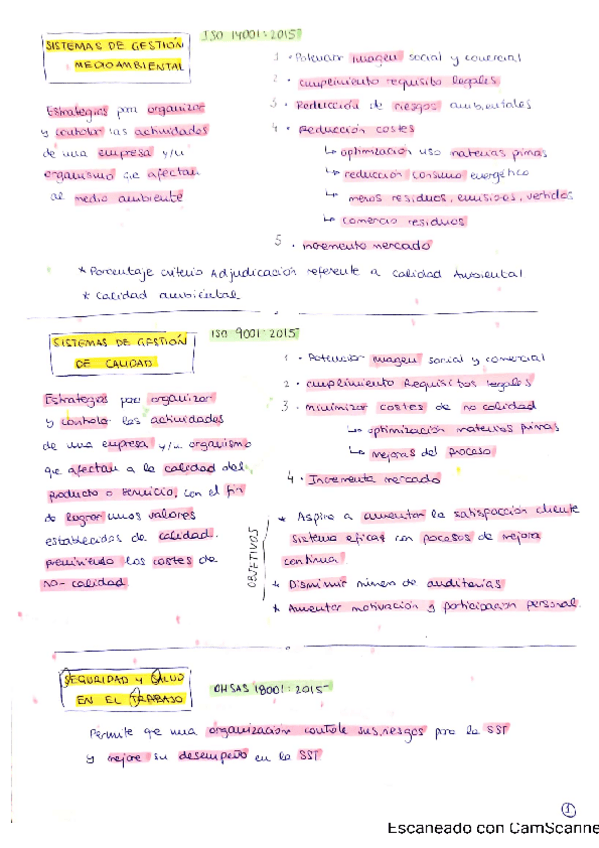 SISTEMAS DE GESTIÓN
MEDIOAMBIENTAL
ISO 14001:2015
Estrategias para organizar
y controlar las actividades
de una empresa y/u
organismo que afectan
al medio ambiente
1. Potenciar imagen social y comercial
2. cumplimiento requisito legales
3. Reducción de riesgos ambientales
4. Reducción costes
↳ optimización uso materias primas
↳ reducción consumo energético
↳ menos residuos, emisiones, vertidos
↳ comercio residuos
5. incremento mercado
* Porcentaje criterio Adjudicación referente a calidad Ambiental
* Calidad ambiental
SISTEMAS DE GESTIÓN
DE CALIDAD
ISO 9001:2015
Estrategias para organizar
y controlar las actividades
de una empresa y/u organismo
que afectan a la calidad del
producto o servicio, con el fin
de lograr unos valores
establecidos de calidad.
los costes de
NO-calidad
1. Potenciar imagen social y comercial
2. cumplimiento Requisitos legales
3. minimizar costes de no calidad
↳ optimización materias primas
↳ mejoras del proceso
4. Incrementa mercado
OBJETIVOS
* Aspira a aumentar la satisfacción cliente
sistema eficaz con pocesos de mejora
continua
* Disminuir número de auditorias
* Aumentar motivación y participación personal.
SEGURIDAD Y SALUD
EN EL TRABAJO
OHSAS 18001:2015
Permite que una organización controle sus riesgos para la SST
y mejore su desempeño en la SST
1
Escaneado con CamScanne